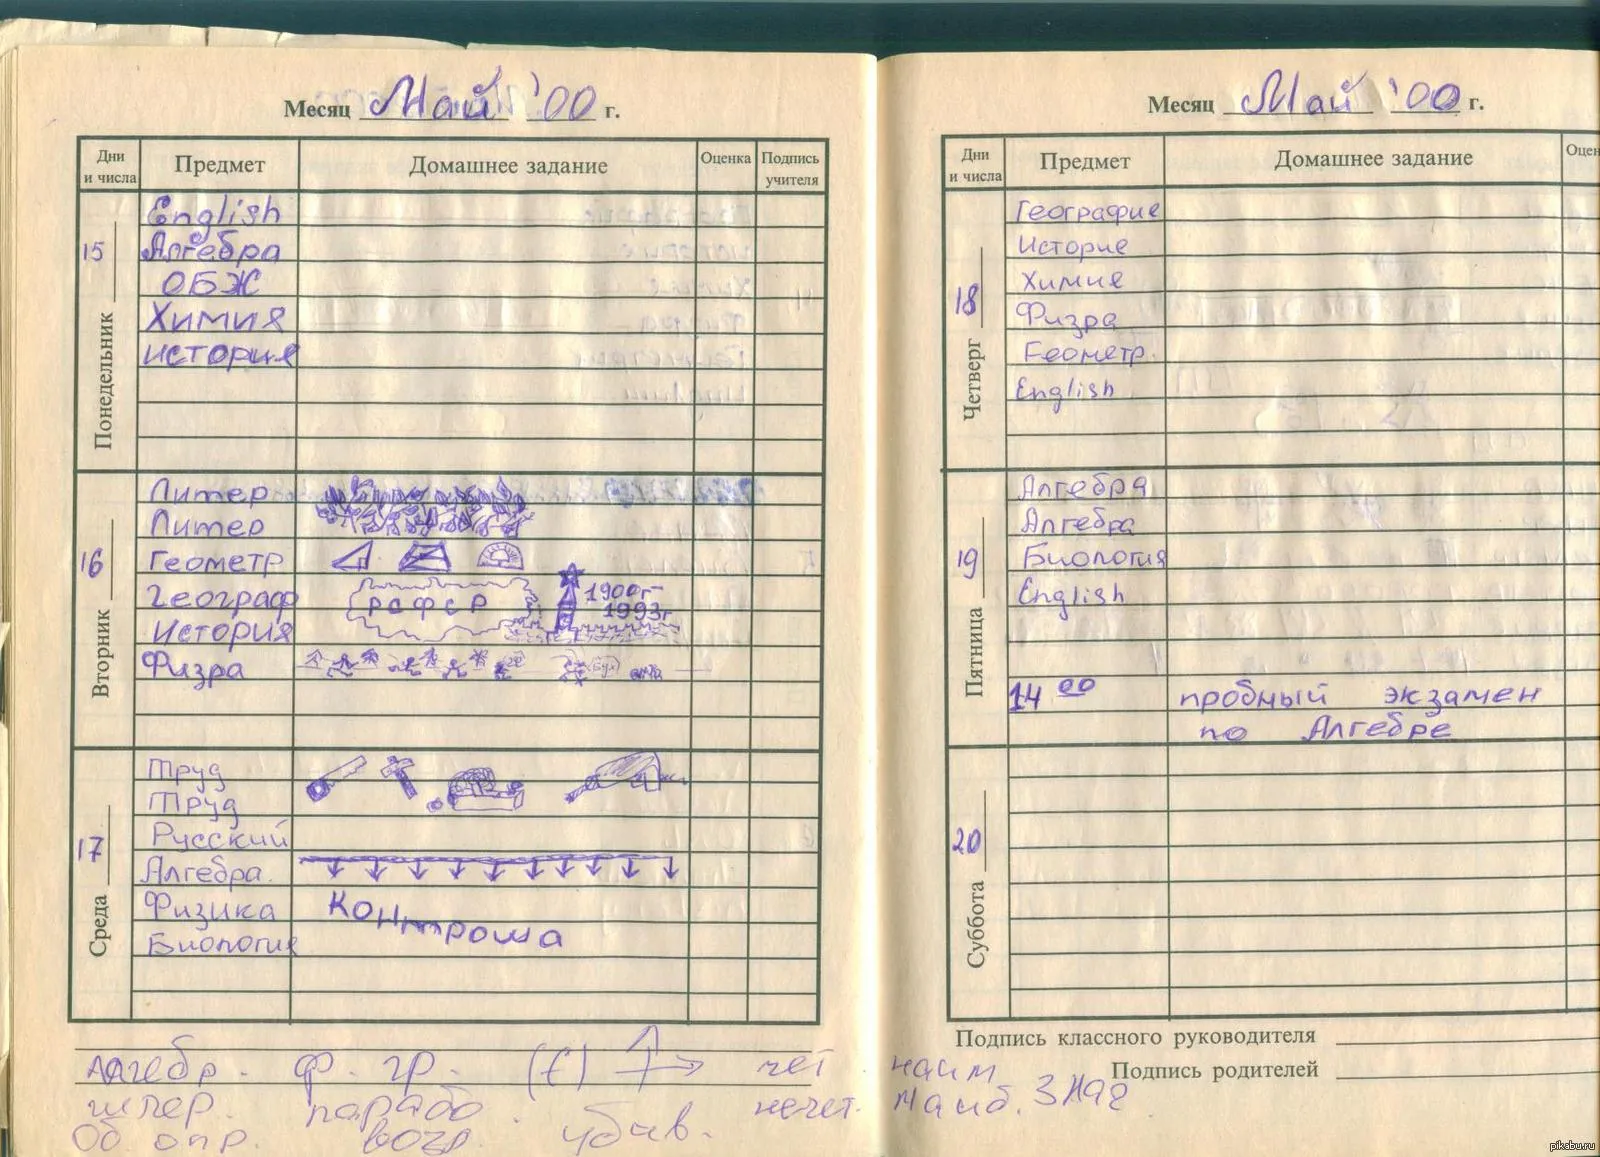 Месяц Май '00 г.
Дни и числа Предмет Домашнее задание Оценка Подпись учителя
15 Понедельник
English
Алгебра
ОБЖ
Химия
история
16 Вторник
Литер
Литер
Геометр
Географ РСФСР 1900г-
История 1993г
Физра
17 Среда
Труд
Труд
Русский
Алгебра.
Физика Контроша
Биология
Алгебр. ф. гр. (f) чет наим
парабо нечет. Наиб. знач.
Об опр. возр. убыв.
Месяц Май '00 г.
Дни и числа Предмет Домашнее задание Оцен
18 Четверг
Географие
Историе
Химия
Физра
Геометр.
English
19 Пятница
Алгебра
Алгебра
Биология
English
14 00 пробный экзамен
по Алгебре
20 Суббота
Подпись классного руководителя
Подпись родителей
pikabu.ru